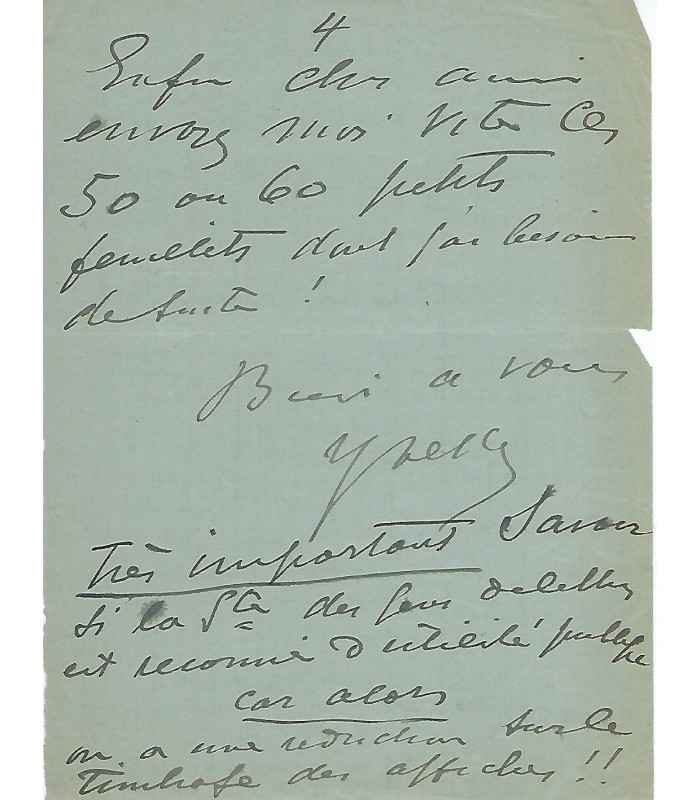 4
Enfin cher ami
envoyez moi vite ces
50 ou 60 petits
feuillets dont j'ai besoin
de suite !
Bien à vous
Yvette
Très important Savoir
si la Sté des gens de lettres
est reconnue d'utilité publique
car alors
on a une réduction sur le
timbrage des affiches !!